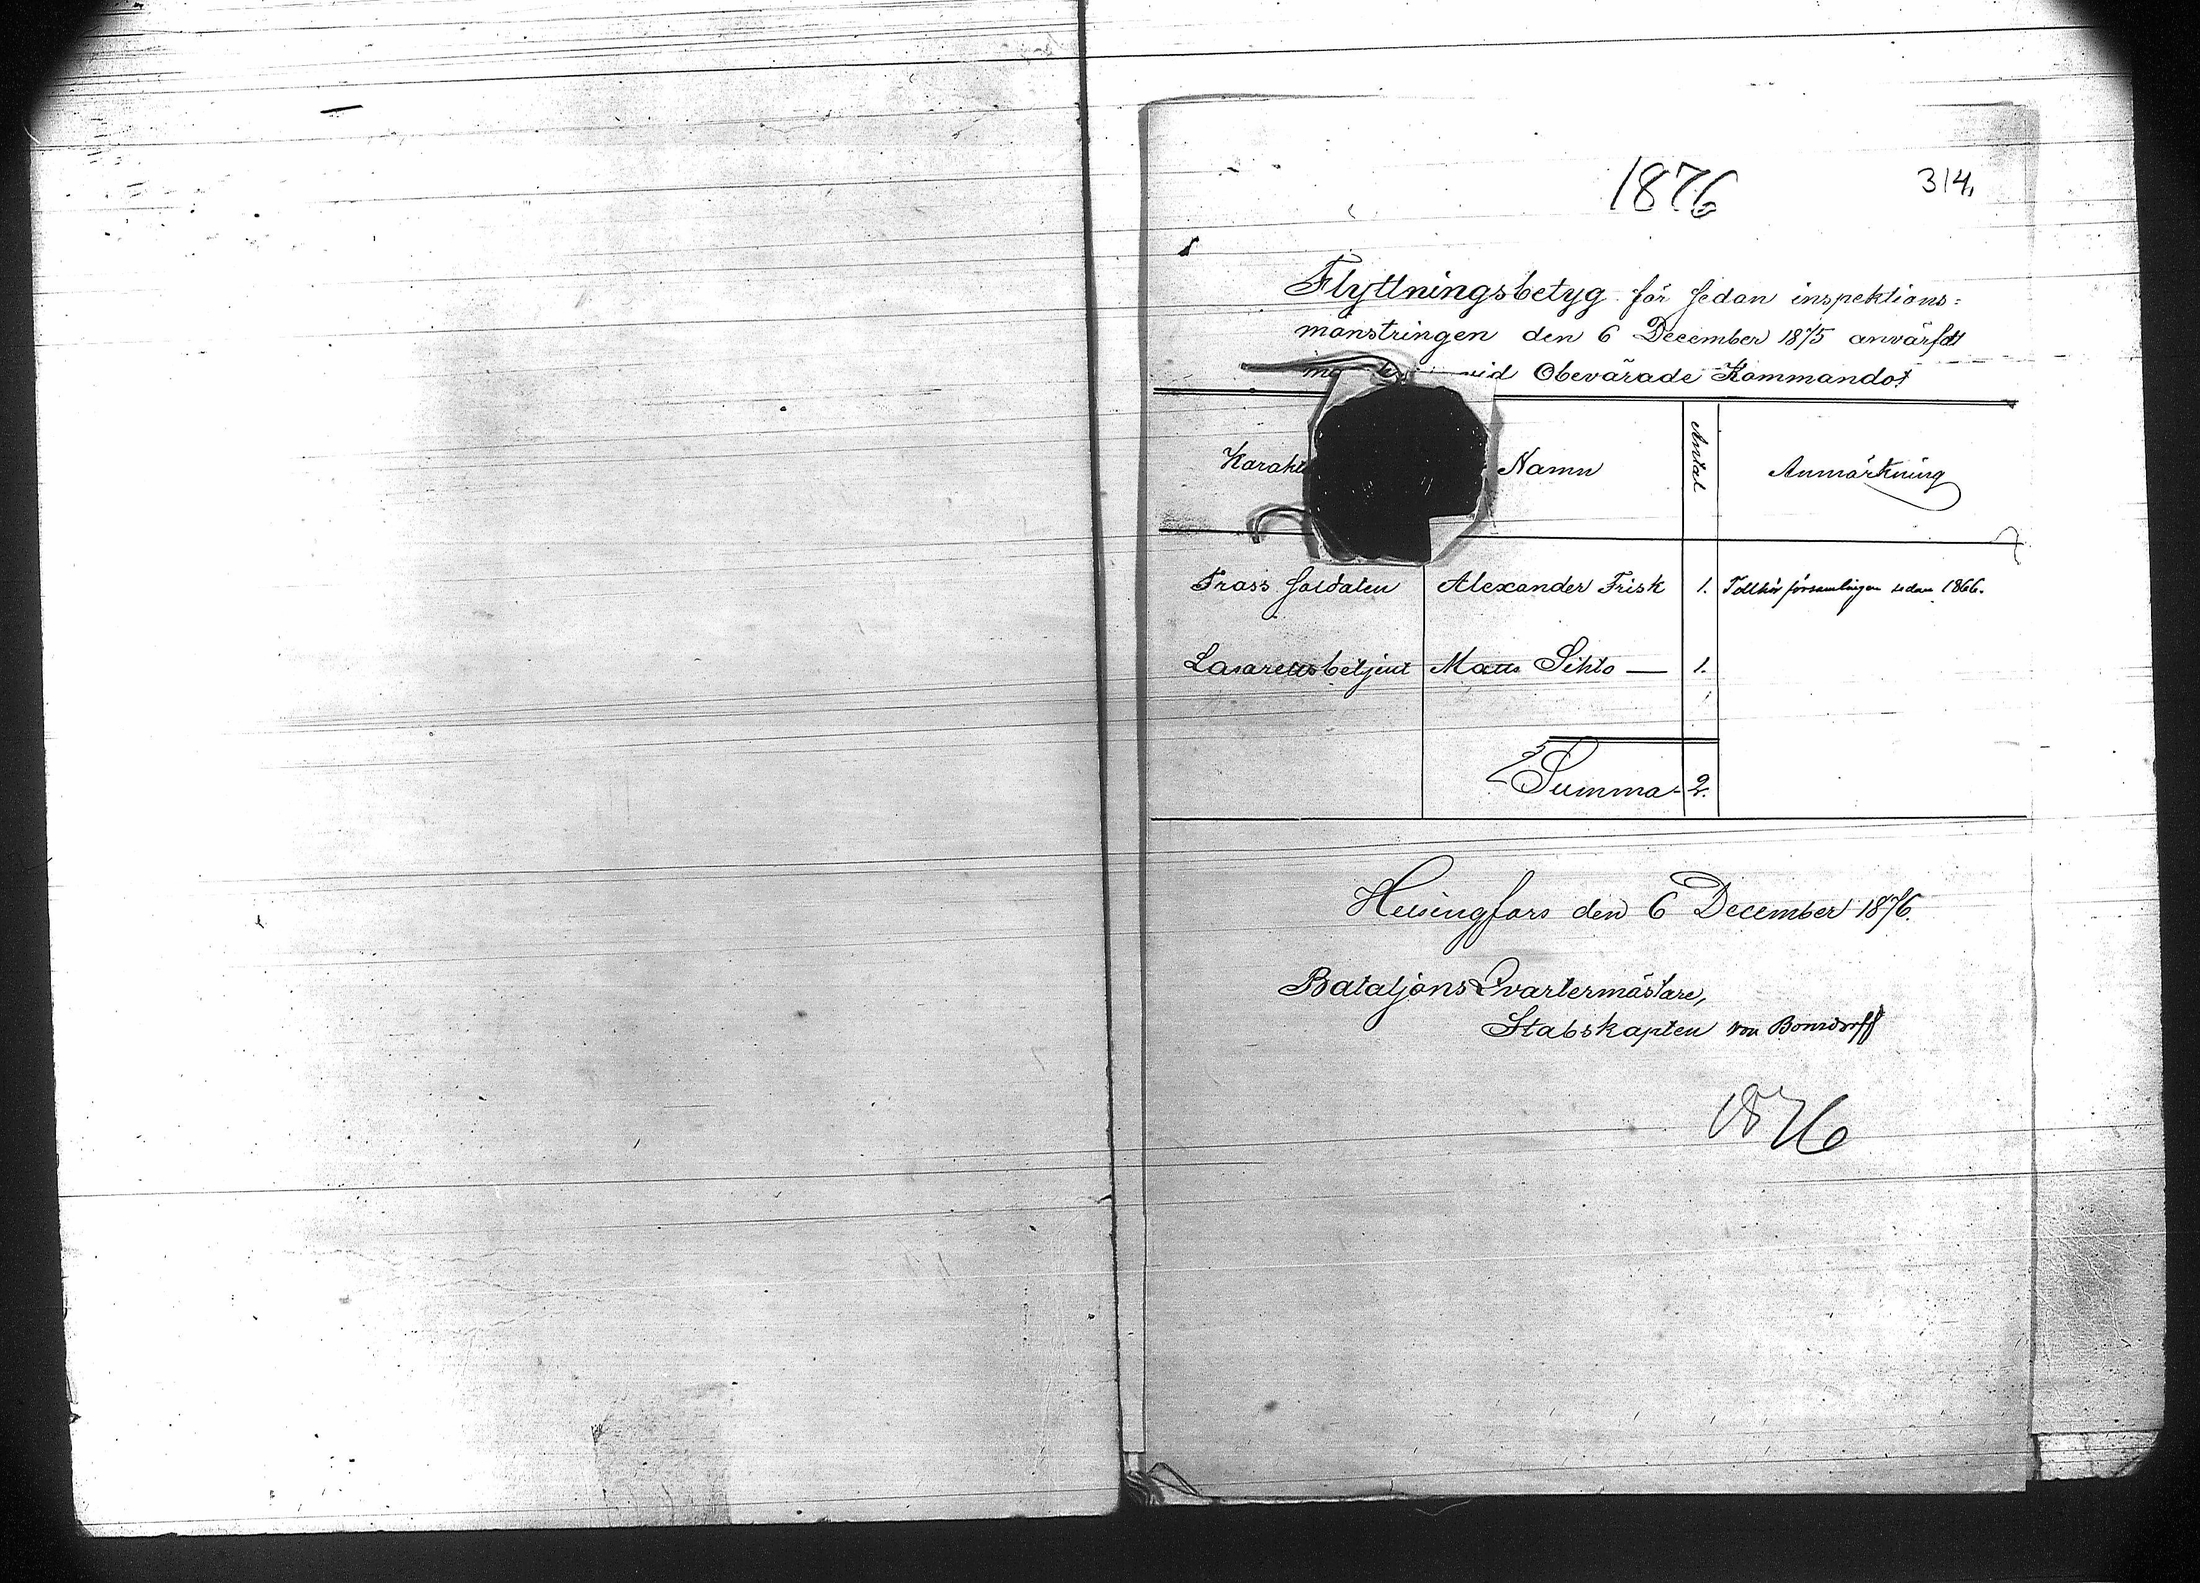 1876
314,
Flyttningsbetyg för sedan inspektions=
mönstringen den 6 December 1875 anvärfdt
vid Obevärade Kommandot
Karakt Namn Antal Anmärkning
Trass Soldaten Alexander Frisk 1. Tillhör församlingen sedan 1866.
Lasarettsbetjent Matts Sihto — 1.
Summa - 2.
Helsingfors den 6 December 1876.
Bataljons Qvartermästare,
Stabskapten von Bonsdorff
1876